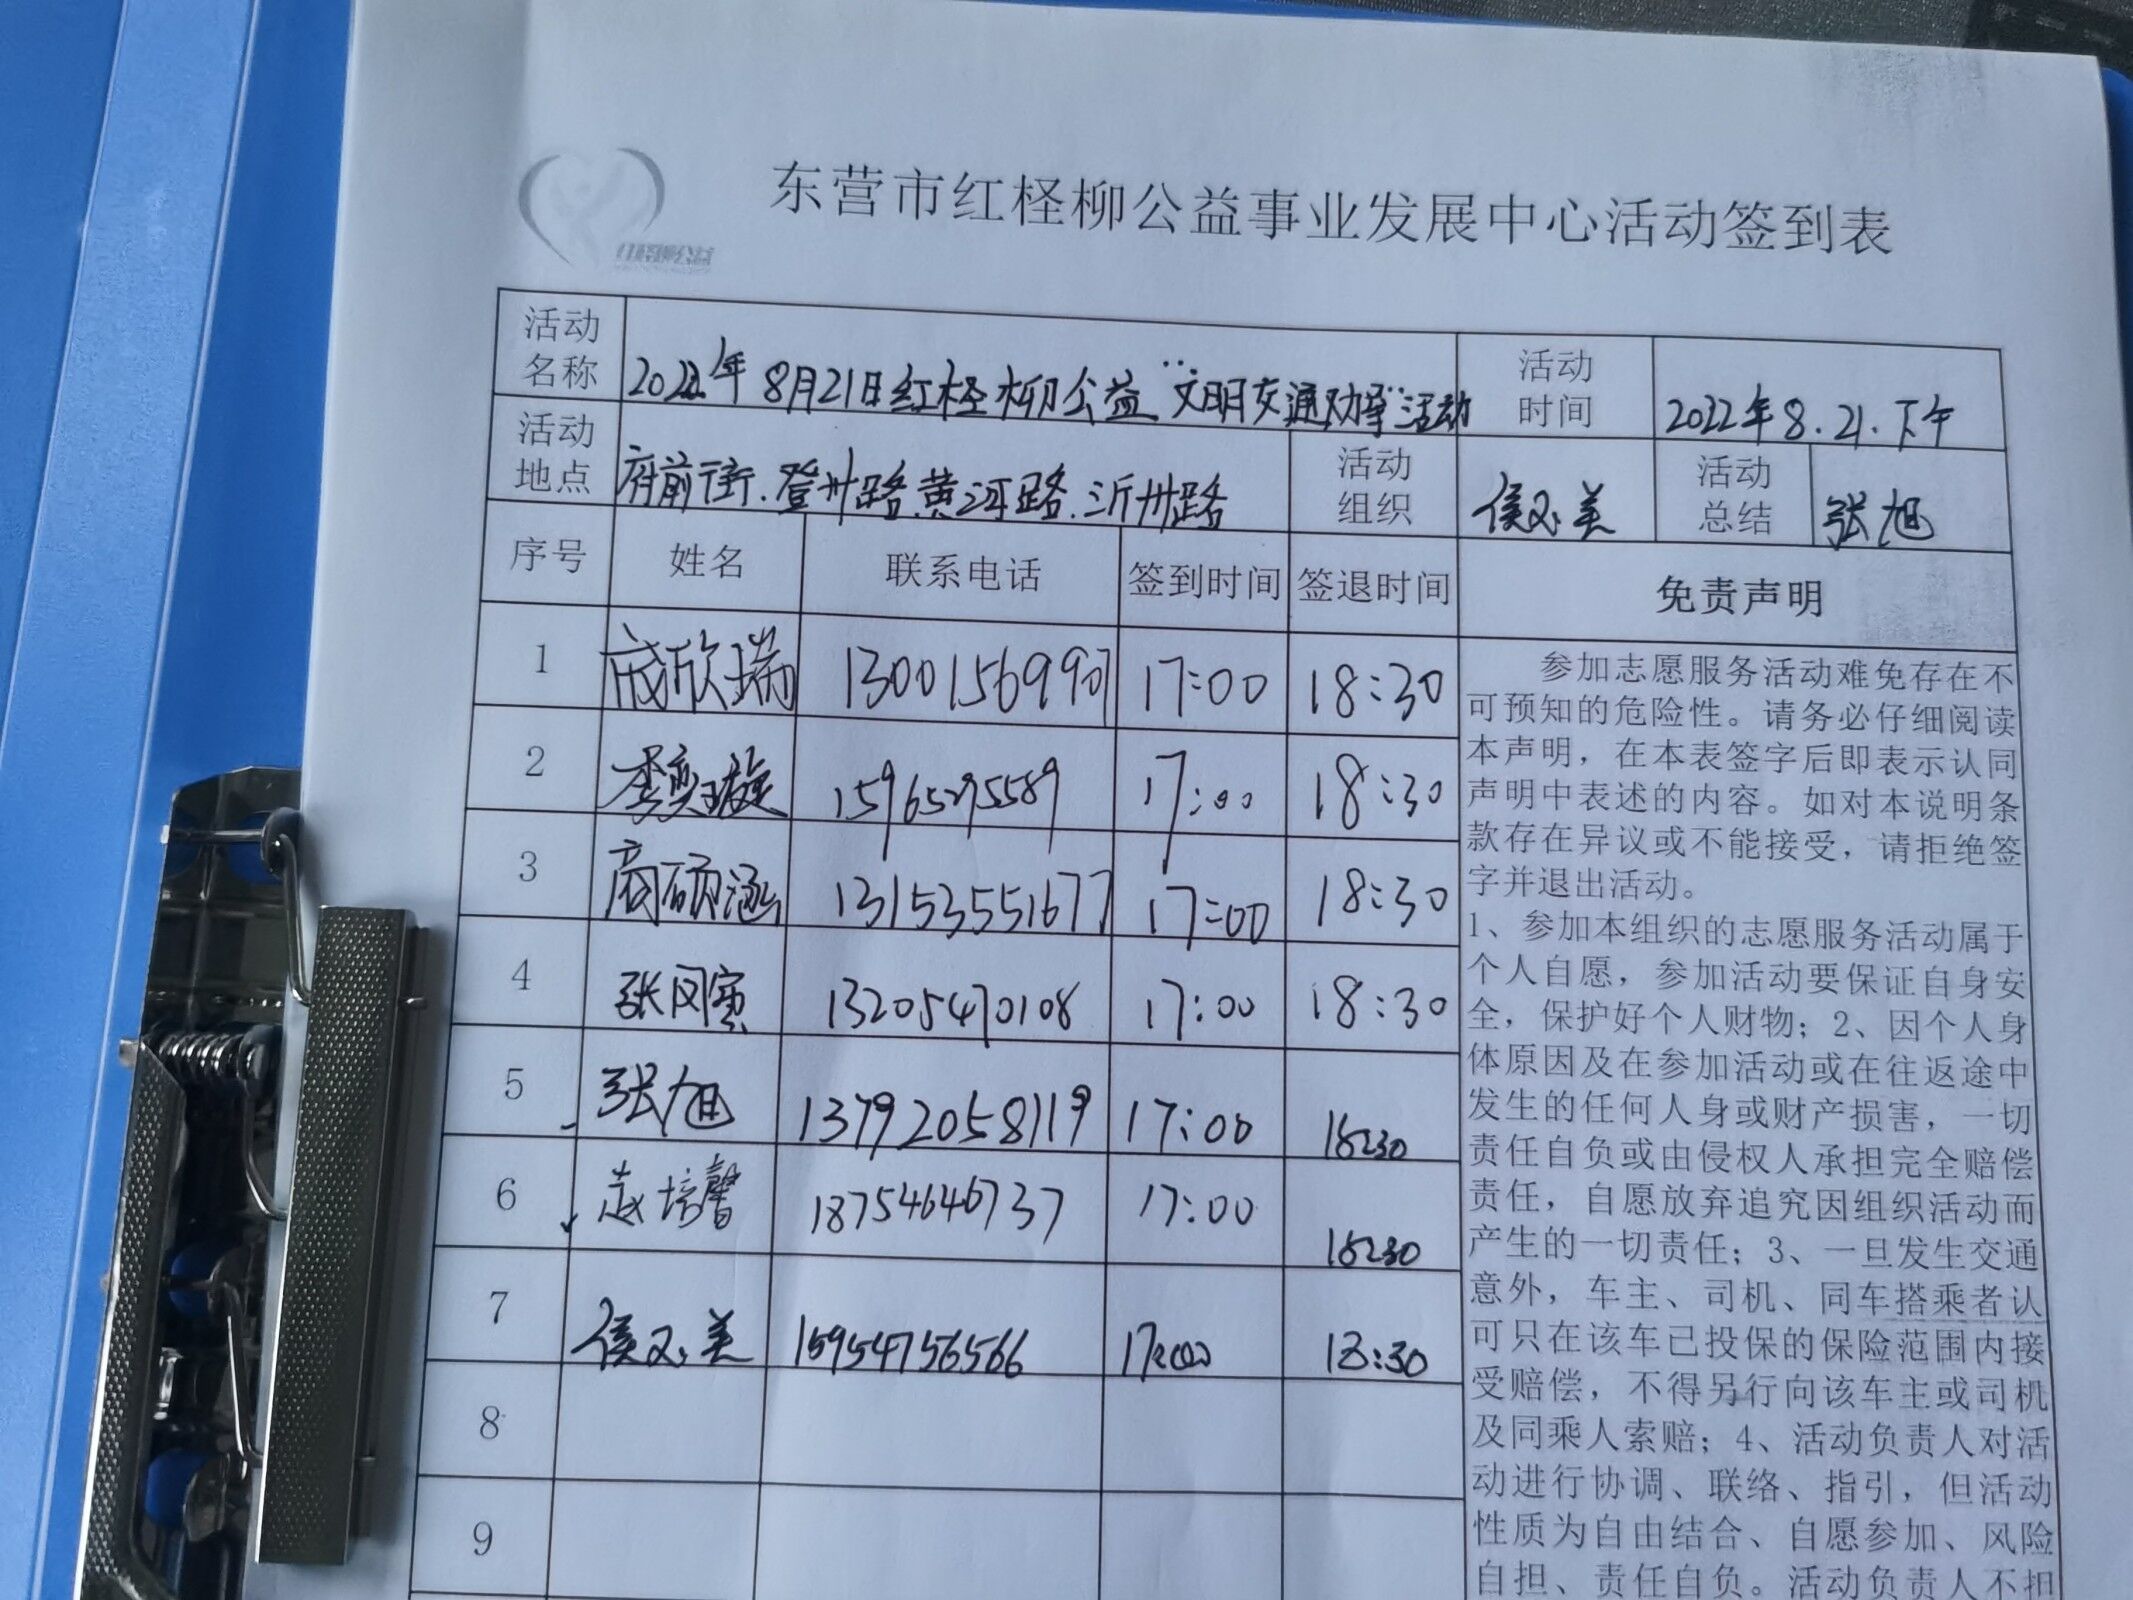 红柽柳公益
东营市红柽柳公益事业发展中心活动签到表
活动名称 2022年8月21日红柽柳公益“文明交通劝导”活动 活动时间 2022年8.21.下午
活动地点 府前街.登州路.黄河路.沂州路 活动组织 侯玉美 活动总结 张旭
序号 姓名 联系电话 签到时间 签退时间 免责声明
1 欣瑞 13001569907 17:00 18:30
2 李奕璇 15965295589 17:00 18:30
3 商硕涵 13153551677 17:00 18:30
4 张闵寅 13205470108 17:00 18:30
5 张旭 13792058119 17:00 18:30
6 赵培馨 18754646737 17:00 18:30
7 侯玉美 15954756566 17:00 18:30
8
9
参加志愿服务活动难免存在不
可预知的危险性。请务必仔细阅读
本声明，在本表签字后即表示认同
声明中表述的内容。如对本说明条
款存在异议或不能接受，请拒绝签
字并退出活动。
1、参加本组织的志愿服务活动属于
个人自愿，参加活动要保证自身安
全，保护好个人财物；2、因个人身
体原因及在参加活动或在往返途中
发生的任何人身或财产损害，一切
责任自负或由侵权人承担完全赔偿
责任，自愿放弃追究因组织活动而
产生的一切责任；3、一旦发生交通
意外，车主、司机、同车搭乘者认
可只在该车已投保的保险范围内接
受赔偿，不得另行向该车主或司机
及同乘人索赔；4、活动负责人对活
动进行协调、联络、指引，但活动
性质为自由结合、自愿参加、风险
自担、责任自负。活动负责人不担